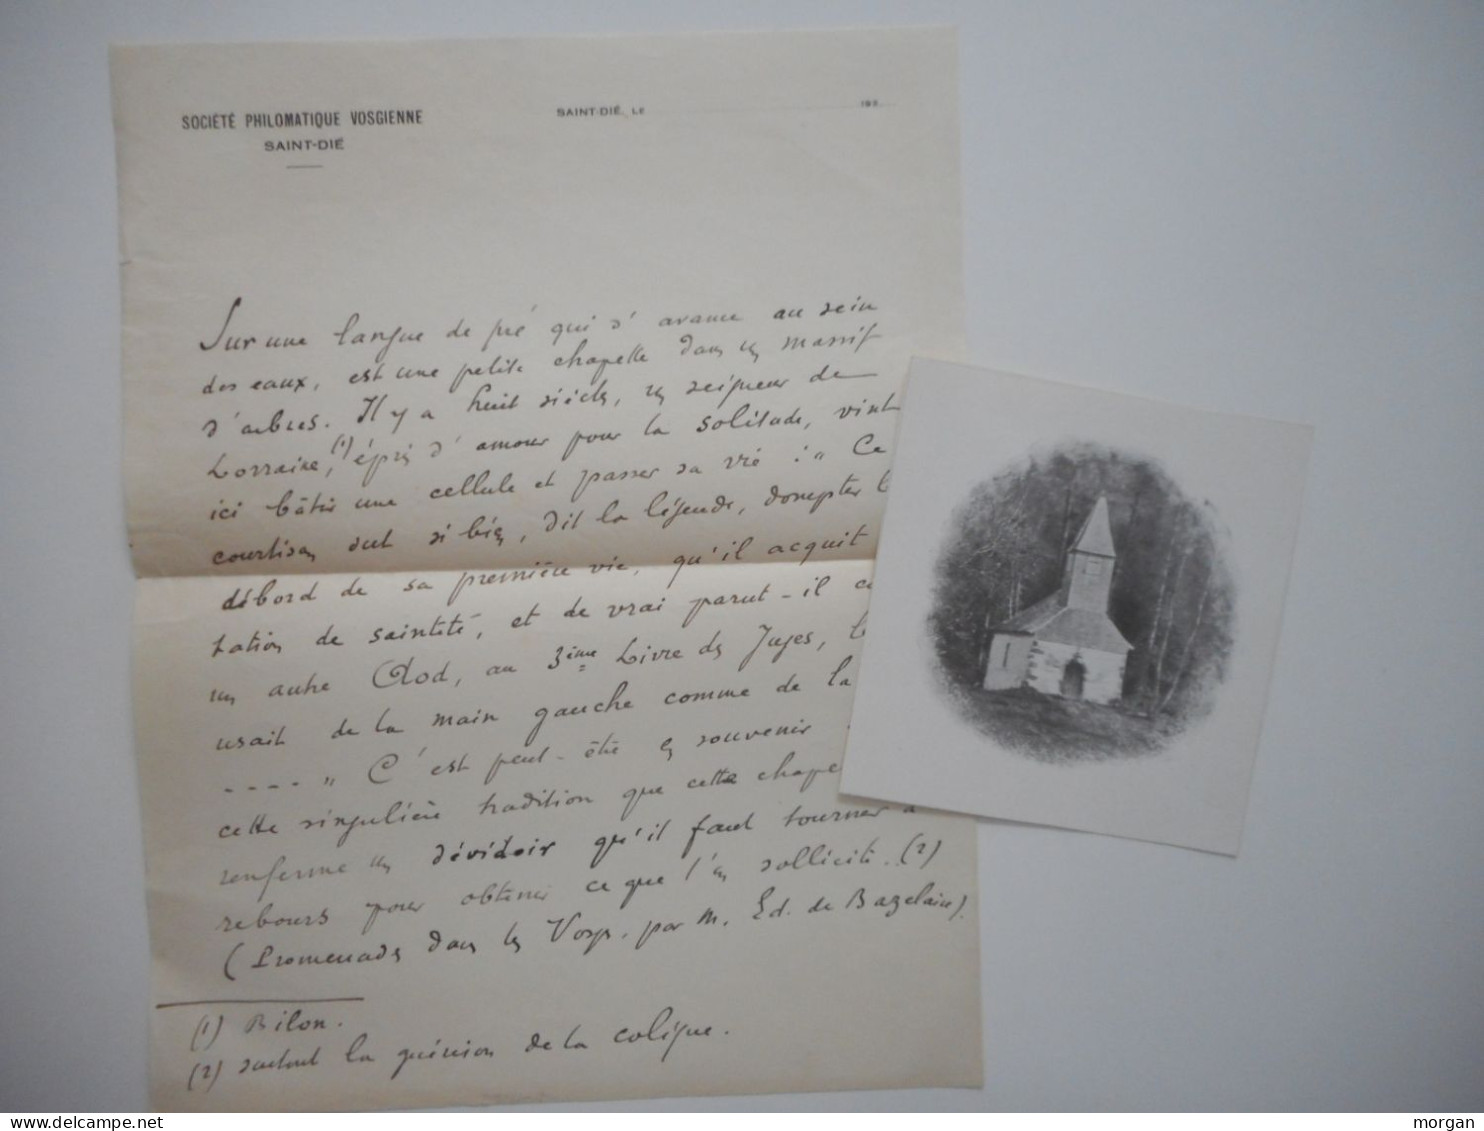 SOCIÉTÉ PHILOMATIQUE VOSGIENNE
SAINT-DIÉ
SAINT-DIÉ, LE 193
Sur une langue de pré qui s'avance au sein
des eaux, est une petite chapelle dans un massif
d'arbres. Il y a huit siècles, un seigneur de
Lorraine, (1) épris d'amour pour la solitude, vint
ici bâtir une cellule et passer sa vie : " Ce
courtisan sut si bien, dit la légende, dompter l
débord de sa première vie, qu'il acquit
tation de sainteté, et de vrai parut-il c
un autre Aod, au 3ème Livre des Juges,
usait de la main gauche comme de la
.... " C'est peut-être en souvenir
cette singulière tradition que cette chape
renferme un dévidoir qu'il faut tourner à
rebours pour obtenir ce que l'on sollicite. (2)
(Promenades dans les Vosges. par M. Ed. de Bazelaire).
(1) Bilon.
(2) surtout la guérison de la colique.
www.delcampe.net
morgan